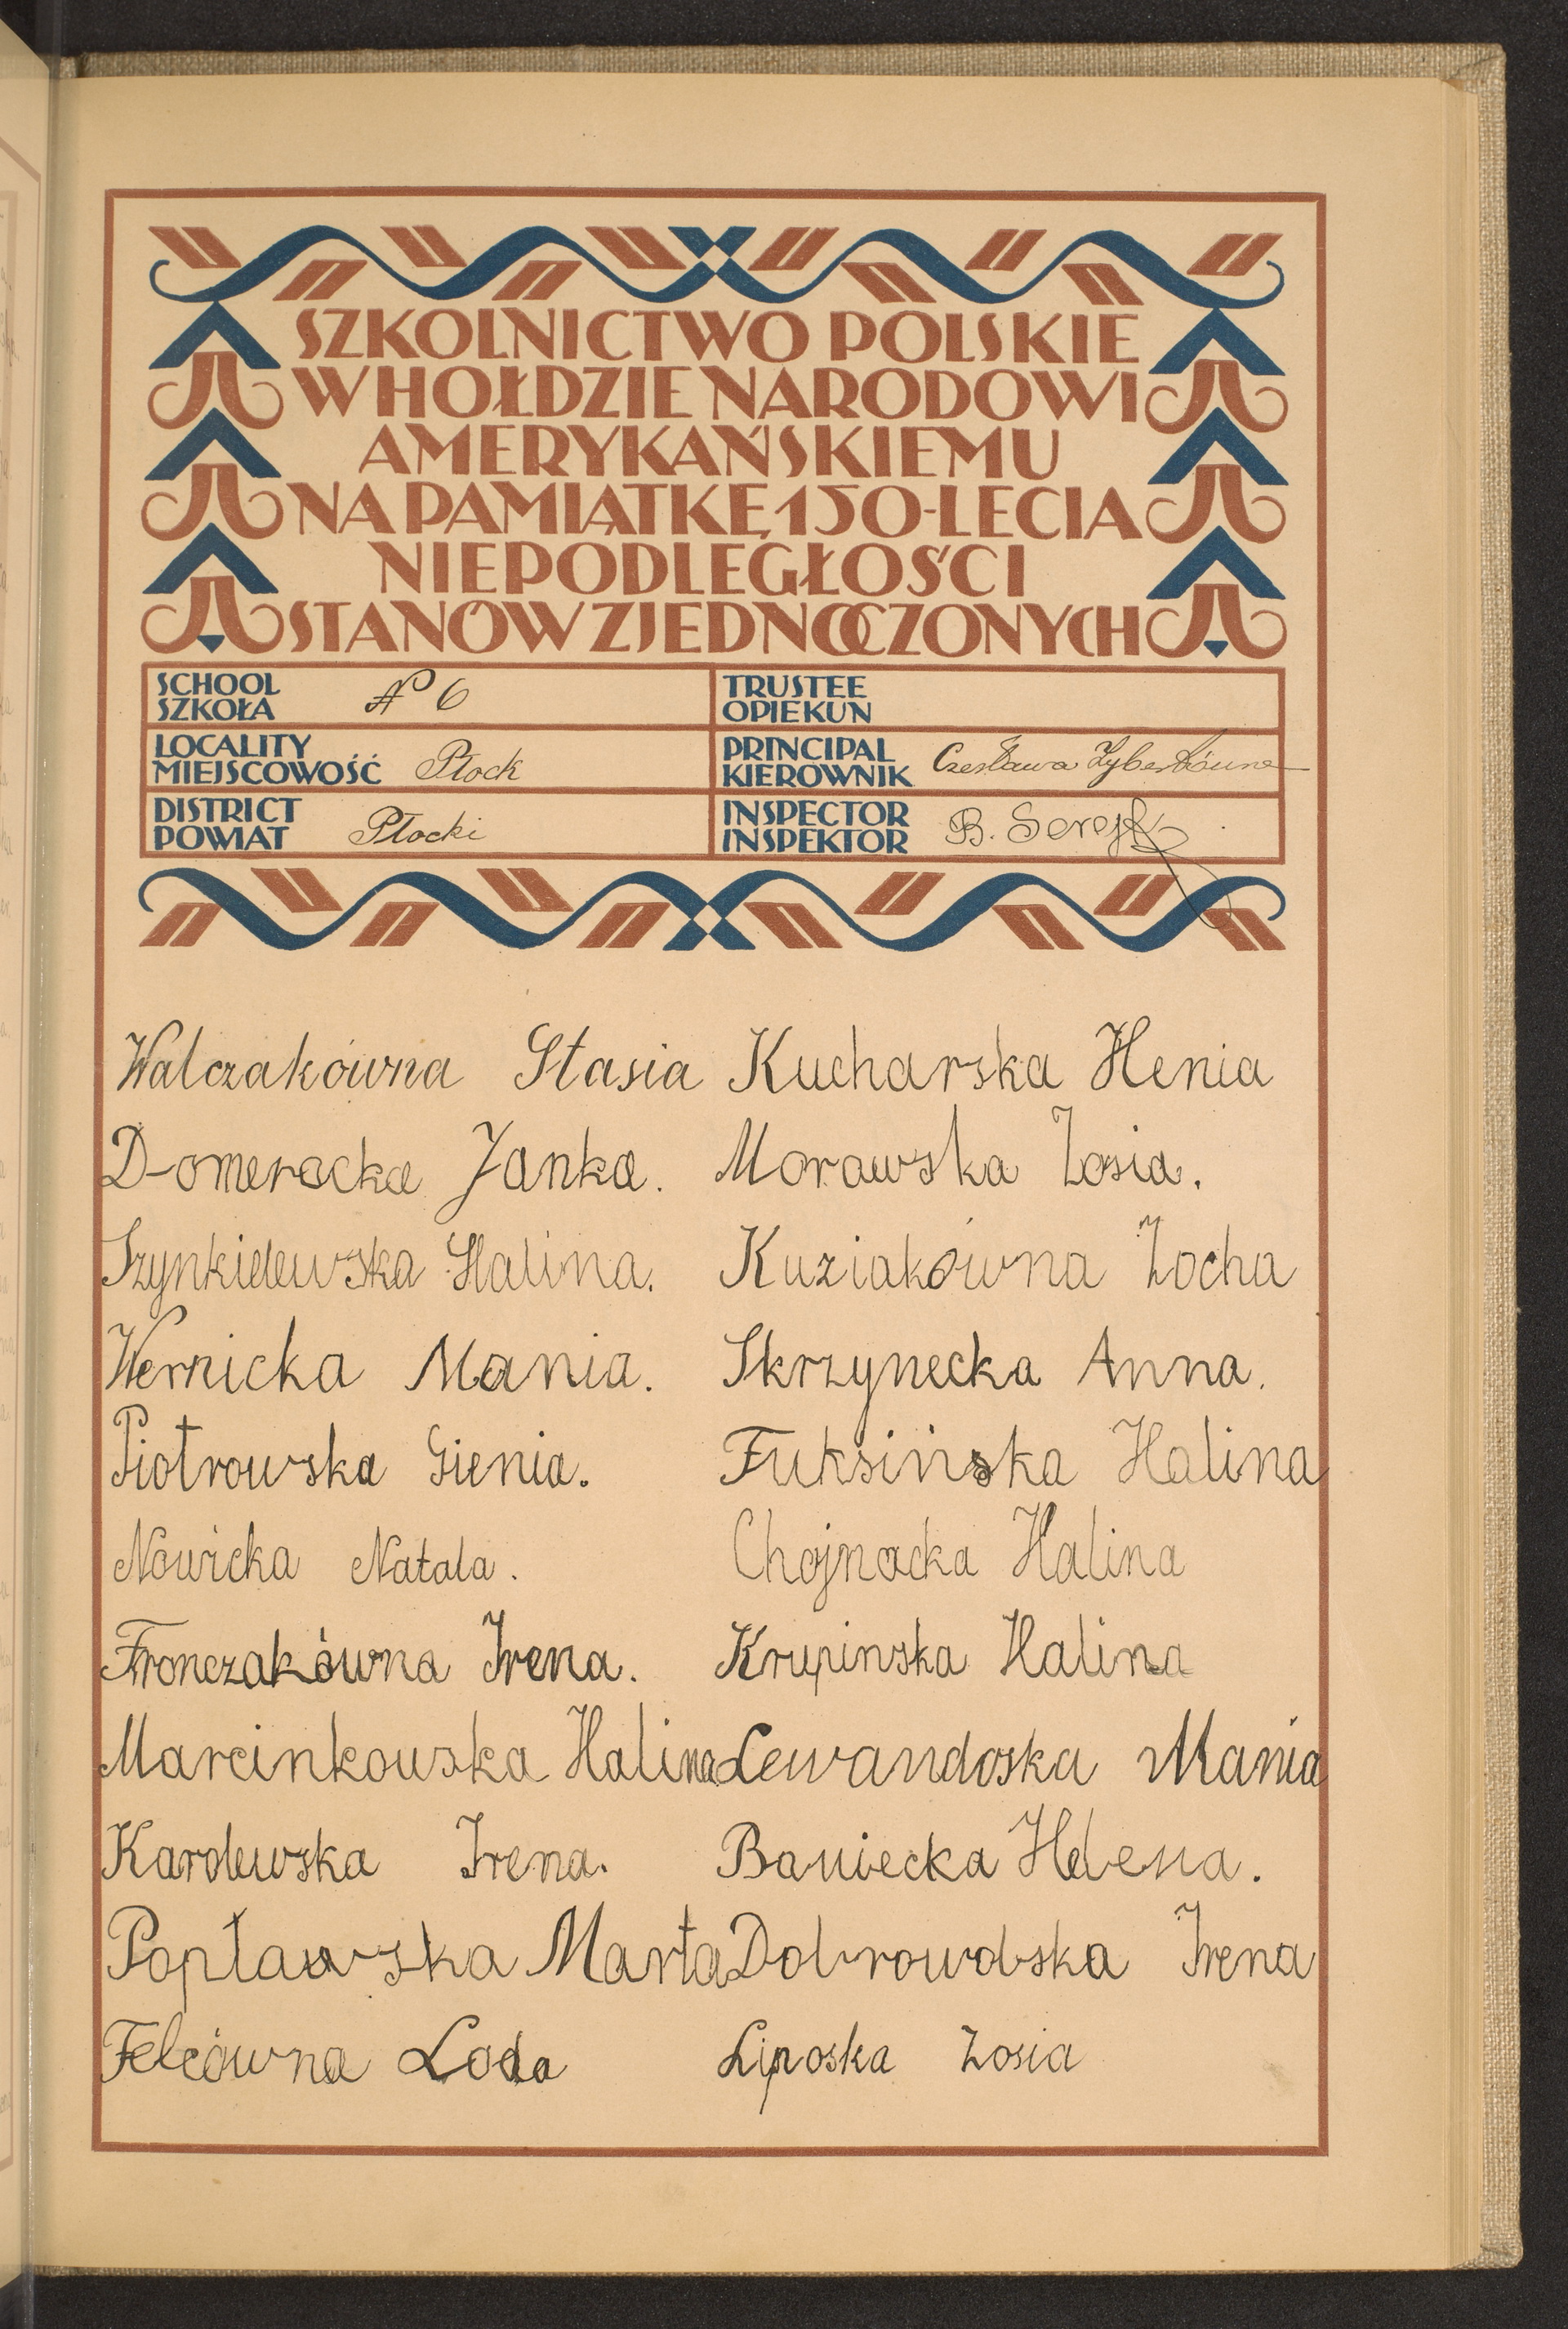 SZKOLNICTWO POLSKIE
W HOŁDZIE NARODOWI
AMERYKAŃSKIEMU
NA PAMIĄTKĘ 150-LECIA
NIEPODLEGŁOŚCI
STANÓW ZJEDNOCZONYCH
SCHOOL
SZKOŁA № 6
TRUSTEE
OPIEKUN
LOCALITY
MIEJSCOWOŚĆ Płock
PRINCIPAL
KIEROWNIK Czesława
DISTRICT
POWIAT Płocki
INSPECTOR
INSPEKTOR B.
Walczakówna Stasia
Domeracka Janka.
Szynkielewska Halina.
Wernicka Mania.
Piotrowska Gienia.
Nowicka Natala.
Fronczakówna Irena.
Marcinkowska Halina
Karolewska Irena.
Popławska Marta
Felcówna Loda
Kucharska Henia
Morawska Zosia.
Kuziakówna Zocha
Skrzynecka Anna.
Fuksińska Halina
Chojnacka Halina
Krupinska Halina
Lewandoska Mania
Baniecka Helena.
Dobrowolska Irena
Liposka Zosia